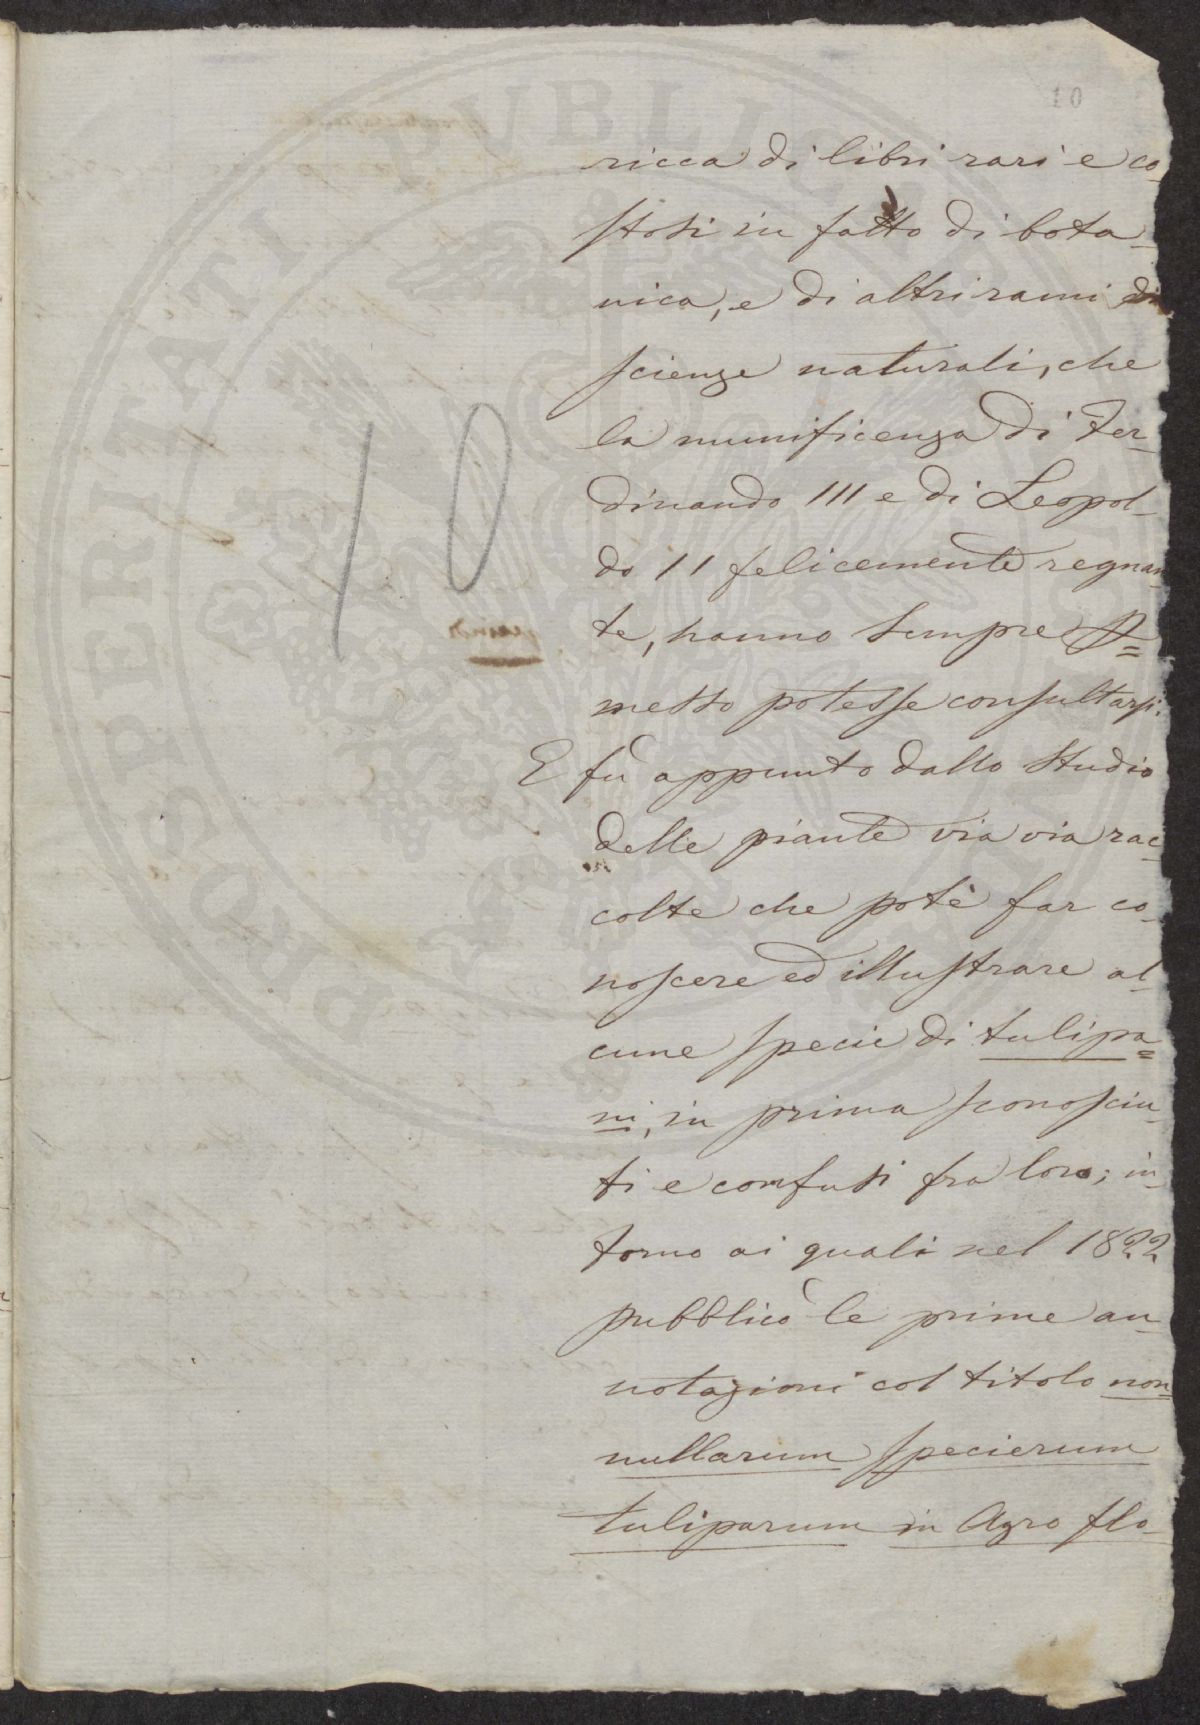 10
ricca di libri rari e co-
stosi in fatto di bota-
nica, e di altri rami di
scienze naturali, che
la munificenza di Fer-
dinando III e di Leopol-
do II felicemente regnan-
te, hanno sempre
messo potesse consultarsi.
E fù appunto dallo studio
delle piante via via rac-
colte che potè far co-
noscere ed illustrare al-
cune specie di tulipa=
ni, in prima sconosciu-
ti e confusi fra loro; in-
torno ai quali nel 1822
pubblicò le prime an-
notazioni col titolo non-
nullarum specierum
tuliparum in Agro flo-
10
PROSPERITATI PUBLICAE